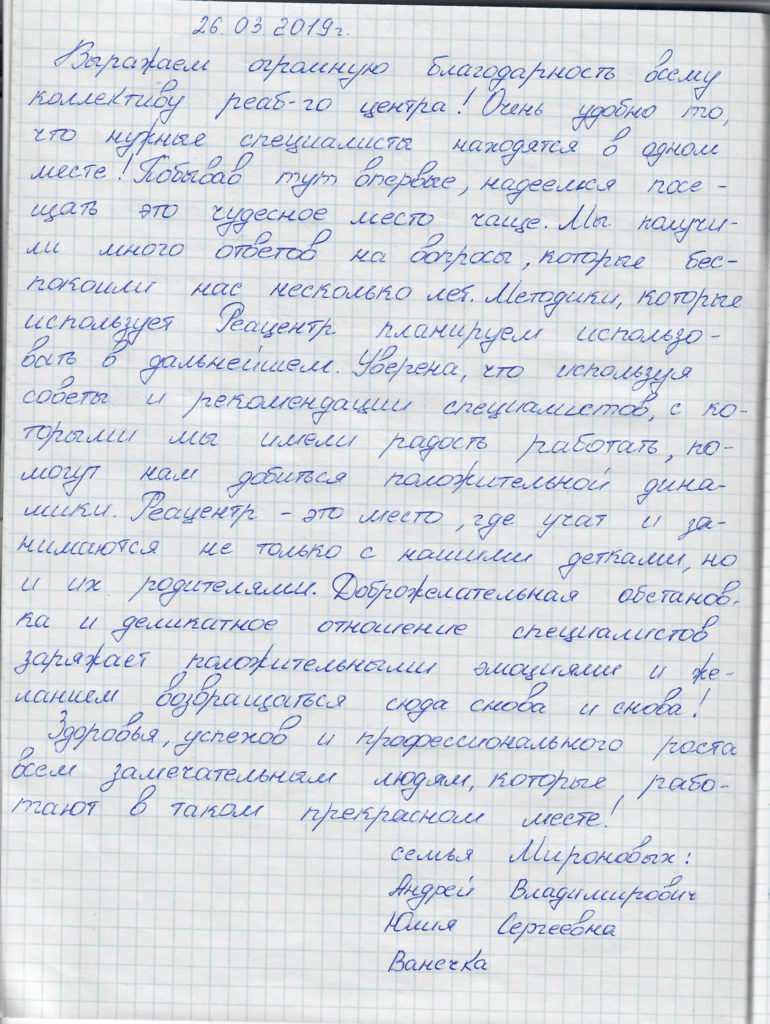 26.03.2019г.
Выражаем огромную благодарность всему
коллективу реаб-го центра! Очень удобно то,
что нужные специалисты находятся в одном
месте! Побывав тут впервые, надеемся посе-
щать это чудесное место чаще. Мы получи-
ли много ответов на вопросы, которые бес-
покоили нас несколько лет. Методики, которые
использует Реацентр планируем использо-
вать в дальнейшем. Уверена, что используя
советы и рекомендации специалистов, с ко-
торыми мы имели радость работать, по-
могут нам добиться положительной дина-
мики. Реацентр - это место, где учат и за-
нимаются не только с нашими детками, но
и их родителями. Доброжелательная обстанов-
ка и деликатное отношение специалистов
заряжает положительными эмоциями и же-
ланием возвращаться сюда снова и снова!
Здоровья, успехов и профессионального роста
всем замечательным людям, которые рабо-
тают в таком прекрасном месте!
семья Мироновых:
Андрей Владимирович
Юлия Сергеевна
Ванечка